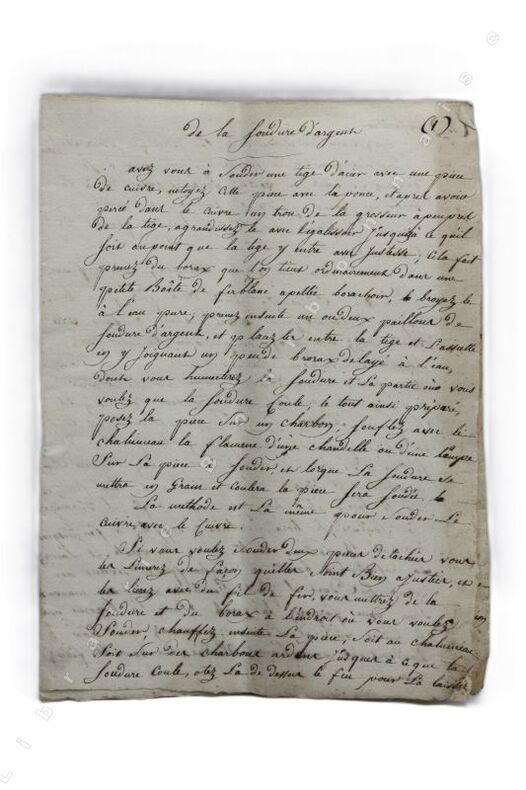 (1)
de la soudure d'argent
avez vous à souder une tige d'acier avec une piece
de cuivre, netoyez cette piece avec la ponce, et apres avoir
percé dans le cuivre un trou de la grosseur à peu pres
de la tige, agrandissez le avec l'egalissoir jusqu'à ce qu'il
soit au point que la tige y entre avec justesse; cela fait
prenez du borax que l'on tient ordinairement dans une
petite Boëte de fer blanc apellée borachoir, broyez le
à l'eau pure; prenez ensuite un ou deux paillons de
soudure d'argent, et placez les entre la tige et l'assiette
en y joignant un peu de borax delayé à l'eau,
dont vous humecterez la soudure et la partie où vous
voulez que la soudure coule, le tout ainsi préparé,
posez la piece sur un charbon; souflez avec le
chalumeau la flamme d'une chandelle ou d'une lampe
sur la piece à souder et lorque la soudure se
mettra en grain et coulera la piece sera soudée.
La methode est la même pour souder le
cuivre avec le cuivre.
Si vous voulez souder deux pieces detachées vous
les limerez de façon qu'elles soint bien ajustées, et
les lierez avec du fil de fer, vous mettrez de la
soudure et du borax à l'endroit où vous voulez
souder, chauffez ensuite la piece, soit au chalumeau
soit sur des charbons ardens jusques à ce que la
soudure coule, otez la de dessus le feu pour la laisser